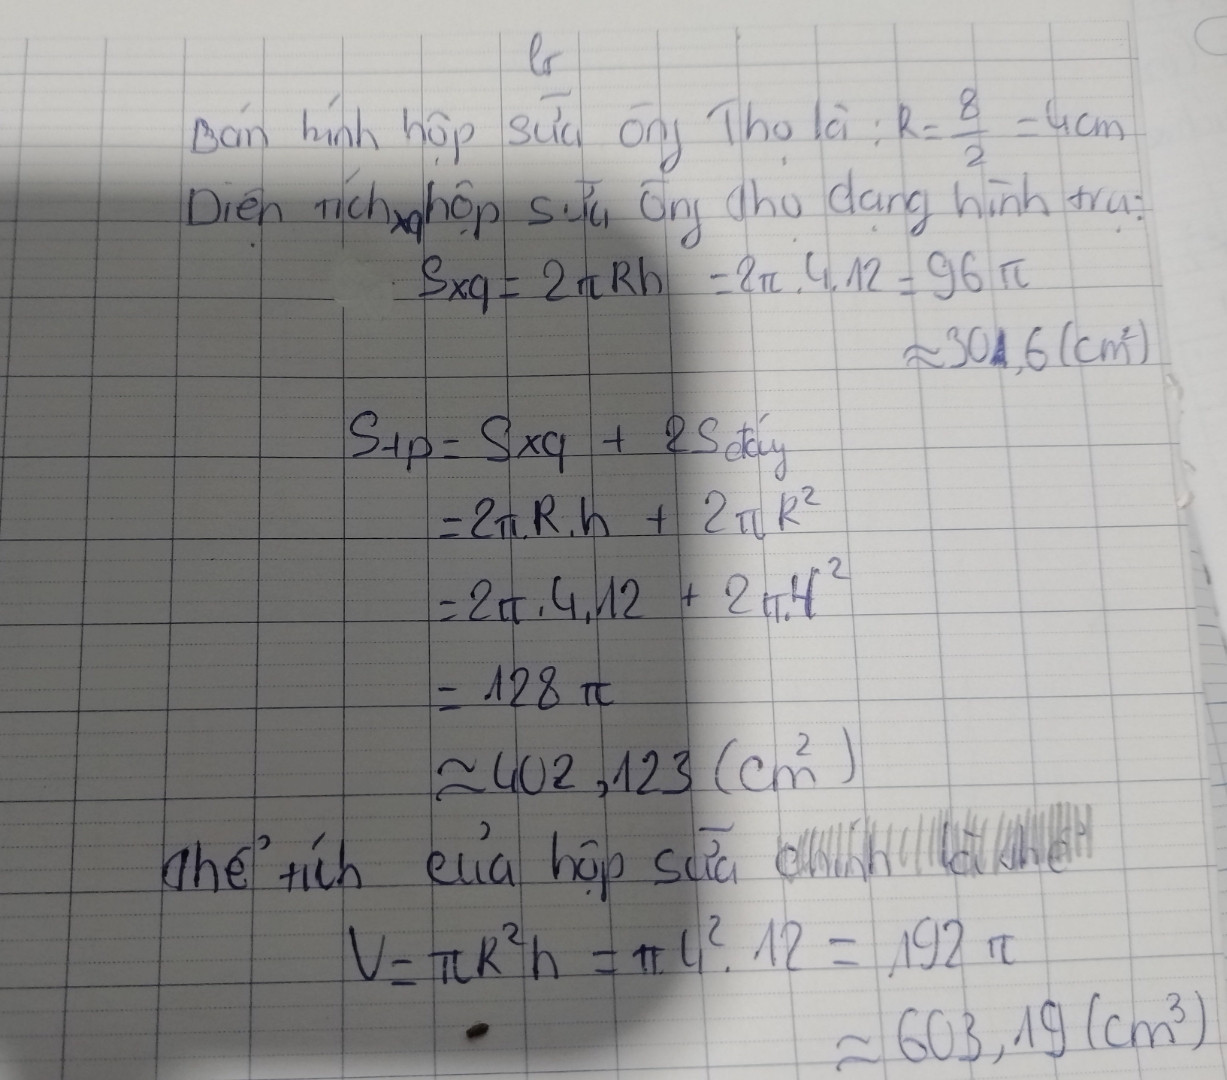 Gr
Bán kính hộp sữa ông Thọ là: R = 8/2 = 4cm
Diện tích xq hộp sữa ông thọ dạng hình trụ:
Sxq = 2πRh = 2π.4.12 = 96π
≈301,6 (cm²)
Stp = Sxq + 2Sđáy
= 2π.R.h + 2πR²
= 2π.4.12 + 2π.4²
= 128π
≈402,123 (cm²)
Thể tích của hộp sữa
V = πR²h = π4².12 = 192π
≈ 603,19 (cm³)